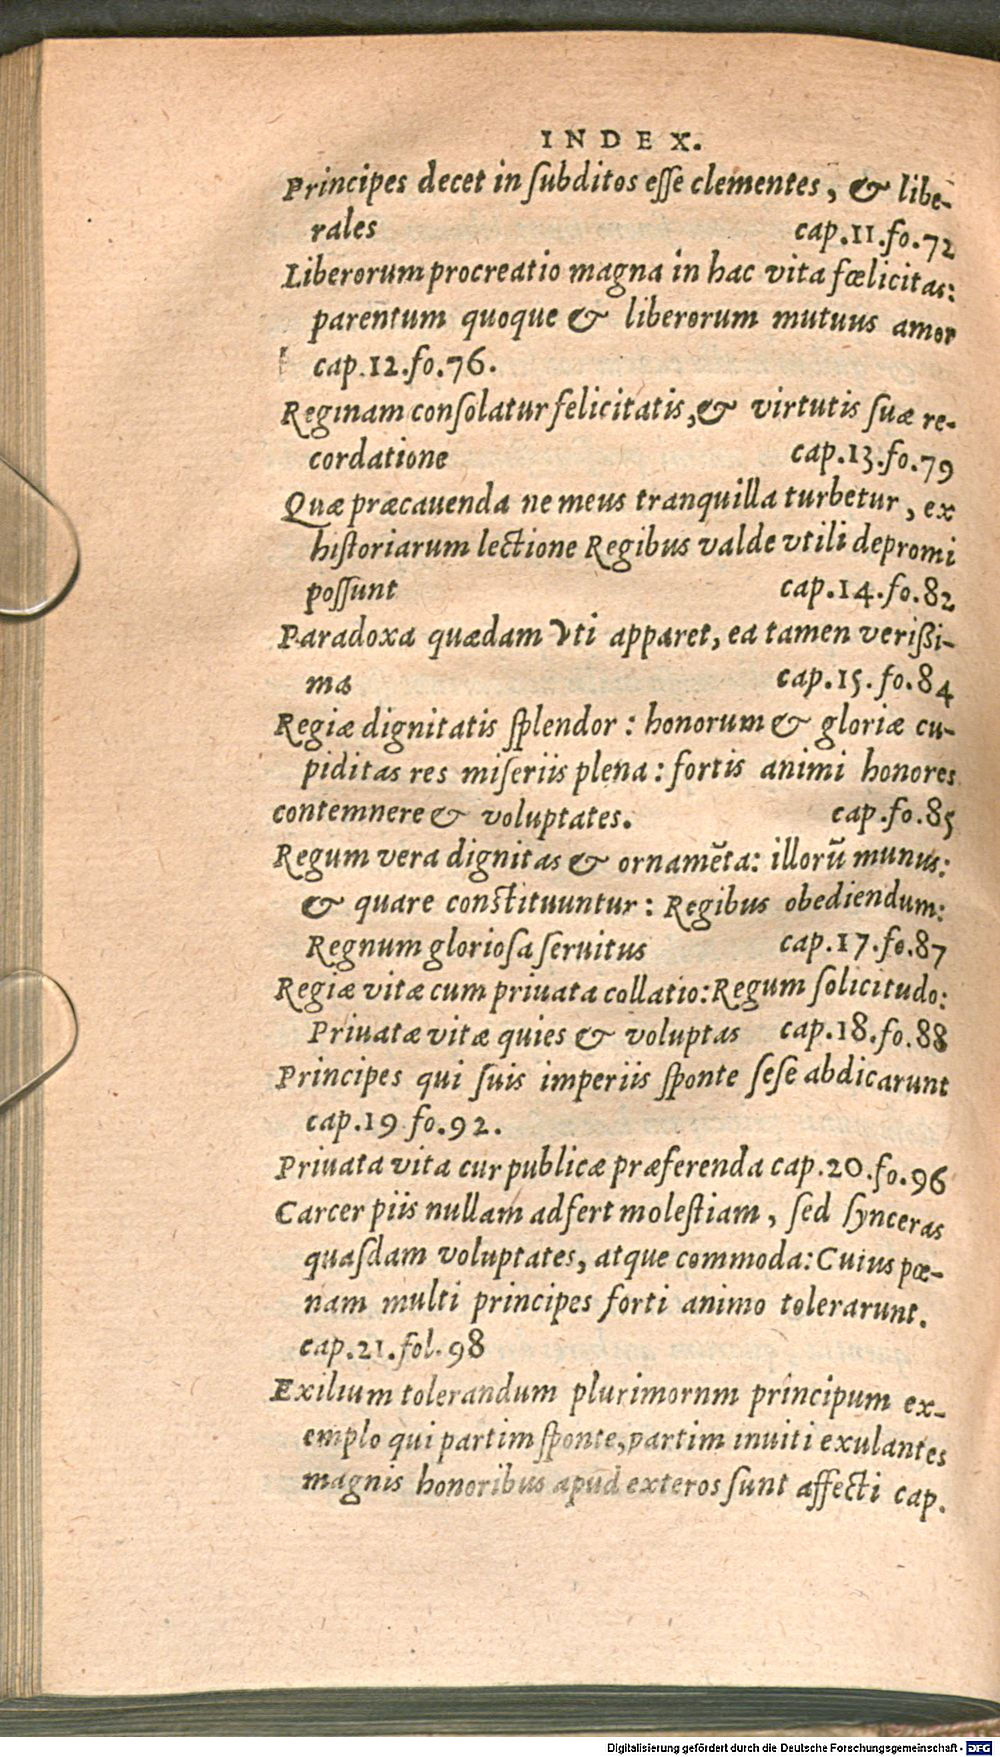 INDEX.
Principes decet in ſubditos eſſe clementes, & libe-
rales cap.11.fo.72
Liberorum procreatio magna in hac vita fœlicitas:
parentum quoque & liberorum mutuus amor
cap.12.fo.76.
Reginam conſolatur felicitatis,& virtutis ſuæ re-
cordatione cap.13.fo.79
Quæ præcauenda ne meus tranquilla turbetur, ex
hiſtoriarum lectione Regibus valde vtili depromi
poſſunt cap.14.fo.82
Paradoxa quædam vti apparet, ea tamen verißi-
ma cap.15.fo.84
Regiæ dignitatis ſplendor: honorum & gloriæ cu-
piditas res miſeriis plena: fortis animi honores
contemnere & voluptates. cap.fo.85
Regum vera dignitas & ornamẽta: illorũ munus:
& quare conſtituuntur: Regibus obediendum:
Regnum glorioſa ſeruitus cap.17.fo.87
Regiæ vitæ cum priuata collatio: Regum ſolicitudo:
Priuatæ vitæ quies & voluptas cap.18.fo.88
Principes qui ſuis imperiis ſponte ſeſe abdicarunt
cap.19 fo.92.
Priuata vita cur publicæ præferenda cap.20.fo.96
Carcer piis nullam adfert moleſtiam, ſed ſynceras
quaſdam voluptates, atque commoda: Cuius pœ-
nam multi principes forti animo tolerarunt.
cap.21.fol.98
Exilium tolerandum plurimornm principum ex-
emplo qui partim ſponte, partim inuiti exulantes
magnis honoribus apud exteros ſunt affecti cap.
Digitalisierung gefördert durch die Deutsche Forschungsgemeinschaft - DFG